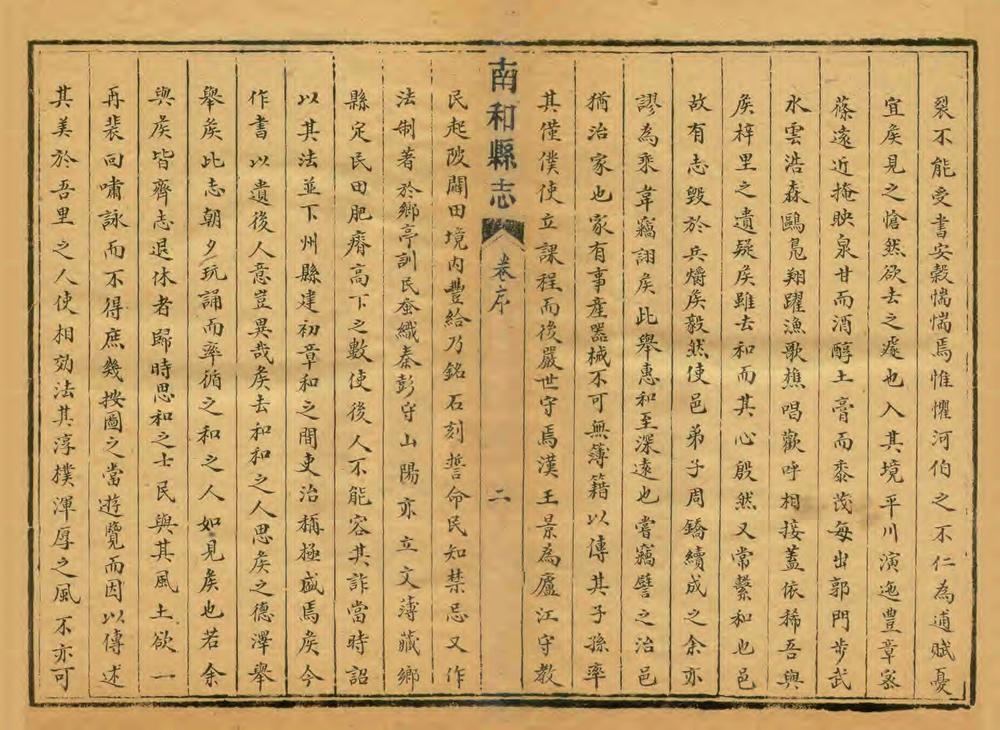 裂不能受書安穀惴惴焉惟懼河伯之不仁為逋賦憂
宜矦見之愴然欲去之遽也入其境平川演迤豊章宻
蓧遠近掩映泉甘而酒醇土膏而黍茂每出郭門步武
水雲浩森鷗鳬翔躍漁歌樵唱歡呼相接蓋依稀吾與
矦梓里之遺疑矦雖去和而其心殷然又常繫和也邑
故有志毀於兵爝矦毅然使邑弟子周鐈續成之余亦
謬為乘韋竊詡矦此舉惠和至深遠也嘗竊譬之治邑
猶治家也家有事產器械不可無簿籍以傳其子孫率
其僮僕使立課程而後嚴世守焉漢王景為廬江守教
南和縣志 卷序 二
民起陂闢田境内豐給乃銘石刻誓命民知禁忌又作
法制著於鄉亭訓民蚕織秦彭守山陽亦立文薄藏鄉
縣定民田肥瘠高下之數使後人不能容其詐當時詔
以其法並下州縣建初章和之間吏治稱極盛焉矦今
作書以遺後人意豈異哉矦去和和之人思矦之德澤舉
舉矦此志朝夕玩誦而率循之和之人如見矦也若余
與矦皆齊志退休者歸時思和之士民與其風土欲一
再裴回嘯詠而不得庶幾按圖之當遊覽而因以傳述
其美於吾里之人使相効法其淳樸渾厚之風不亦可